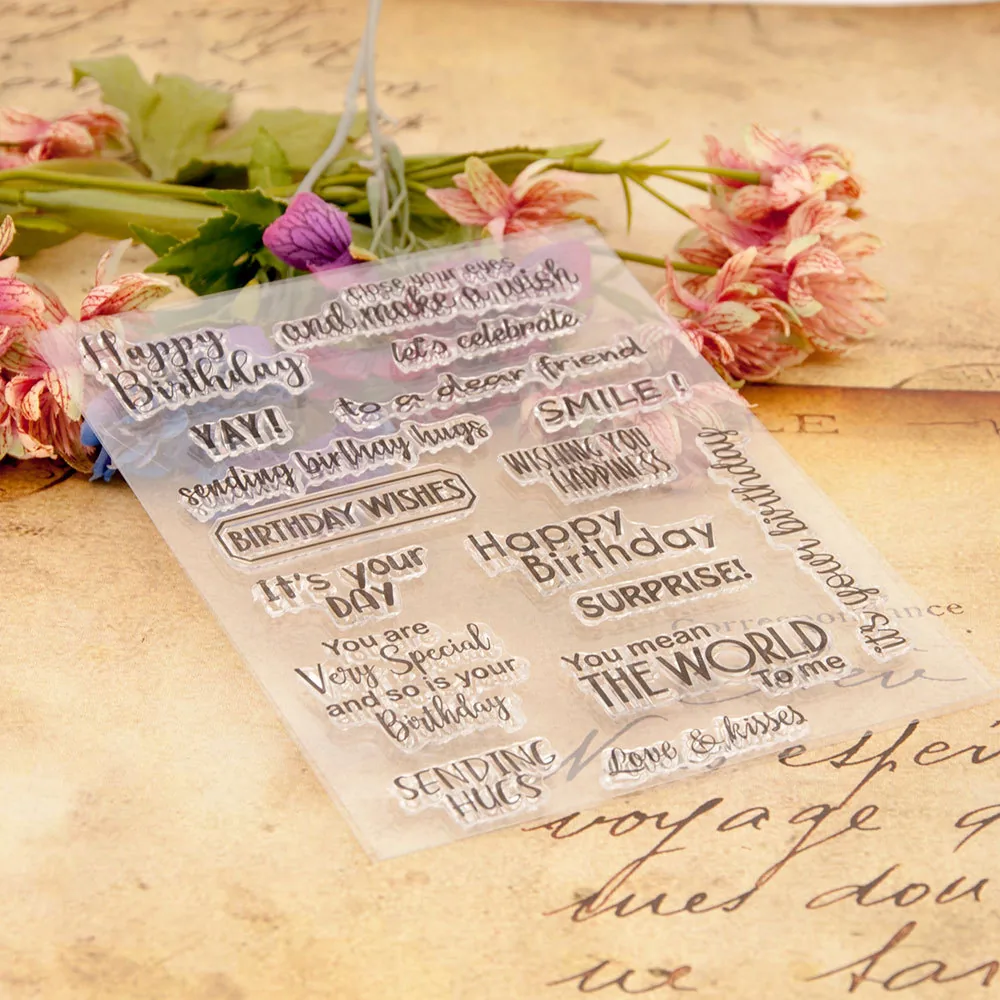 close your eyes
and make a wish
Happy
Birthday
let's celebrate
to a dear friend
YAY!
SMILE !
sending birthday hugs
WISHING YOU
HAPPINESS
it's your birthday
BIRTHDAY WISHES
Happy
Birthday
It's your
DAY
SURPRISE!
You are
Very Special
and so is your
Birthday
You mean
THE WORLD
To me
Correspondance
Love & kisses
SENDING
HUGS
voyage